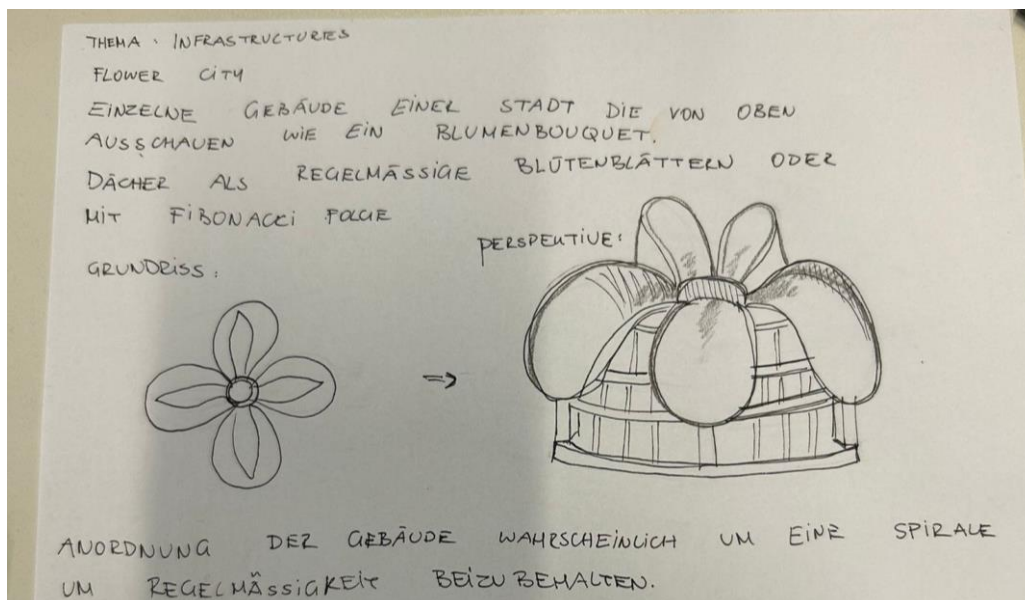 THEMA : INFRASTRUCTURES
FLOWER CITY
EINZELNE GEBÄUDE EINER STADT DIE VON OBEN
AUSSCHAUEN WIE EIN BLUMENBOUQUET.
DÄCHER ALS REGELMÄSSIGE BLÜTENBLÄTTERN ODER
MIT FIBONACCI FOLGE
GRUNDRISS :
PERSPEKTIVE :
=>
ANORDNUNG DER GEBÄUDE WAHRSCHEINLICH UM EINE SPIRALE
UM REGELMÄSSIGKEIT BEIZUBEHALTEN.